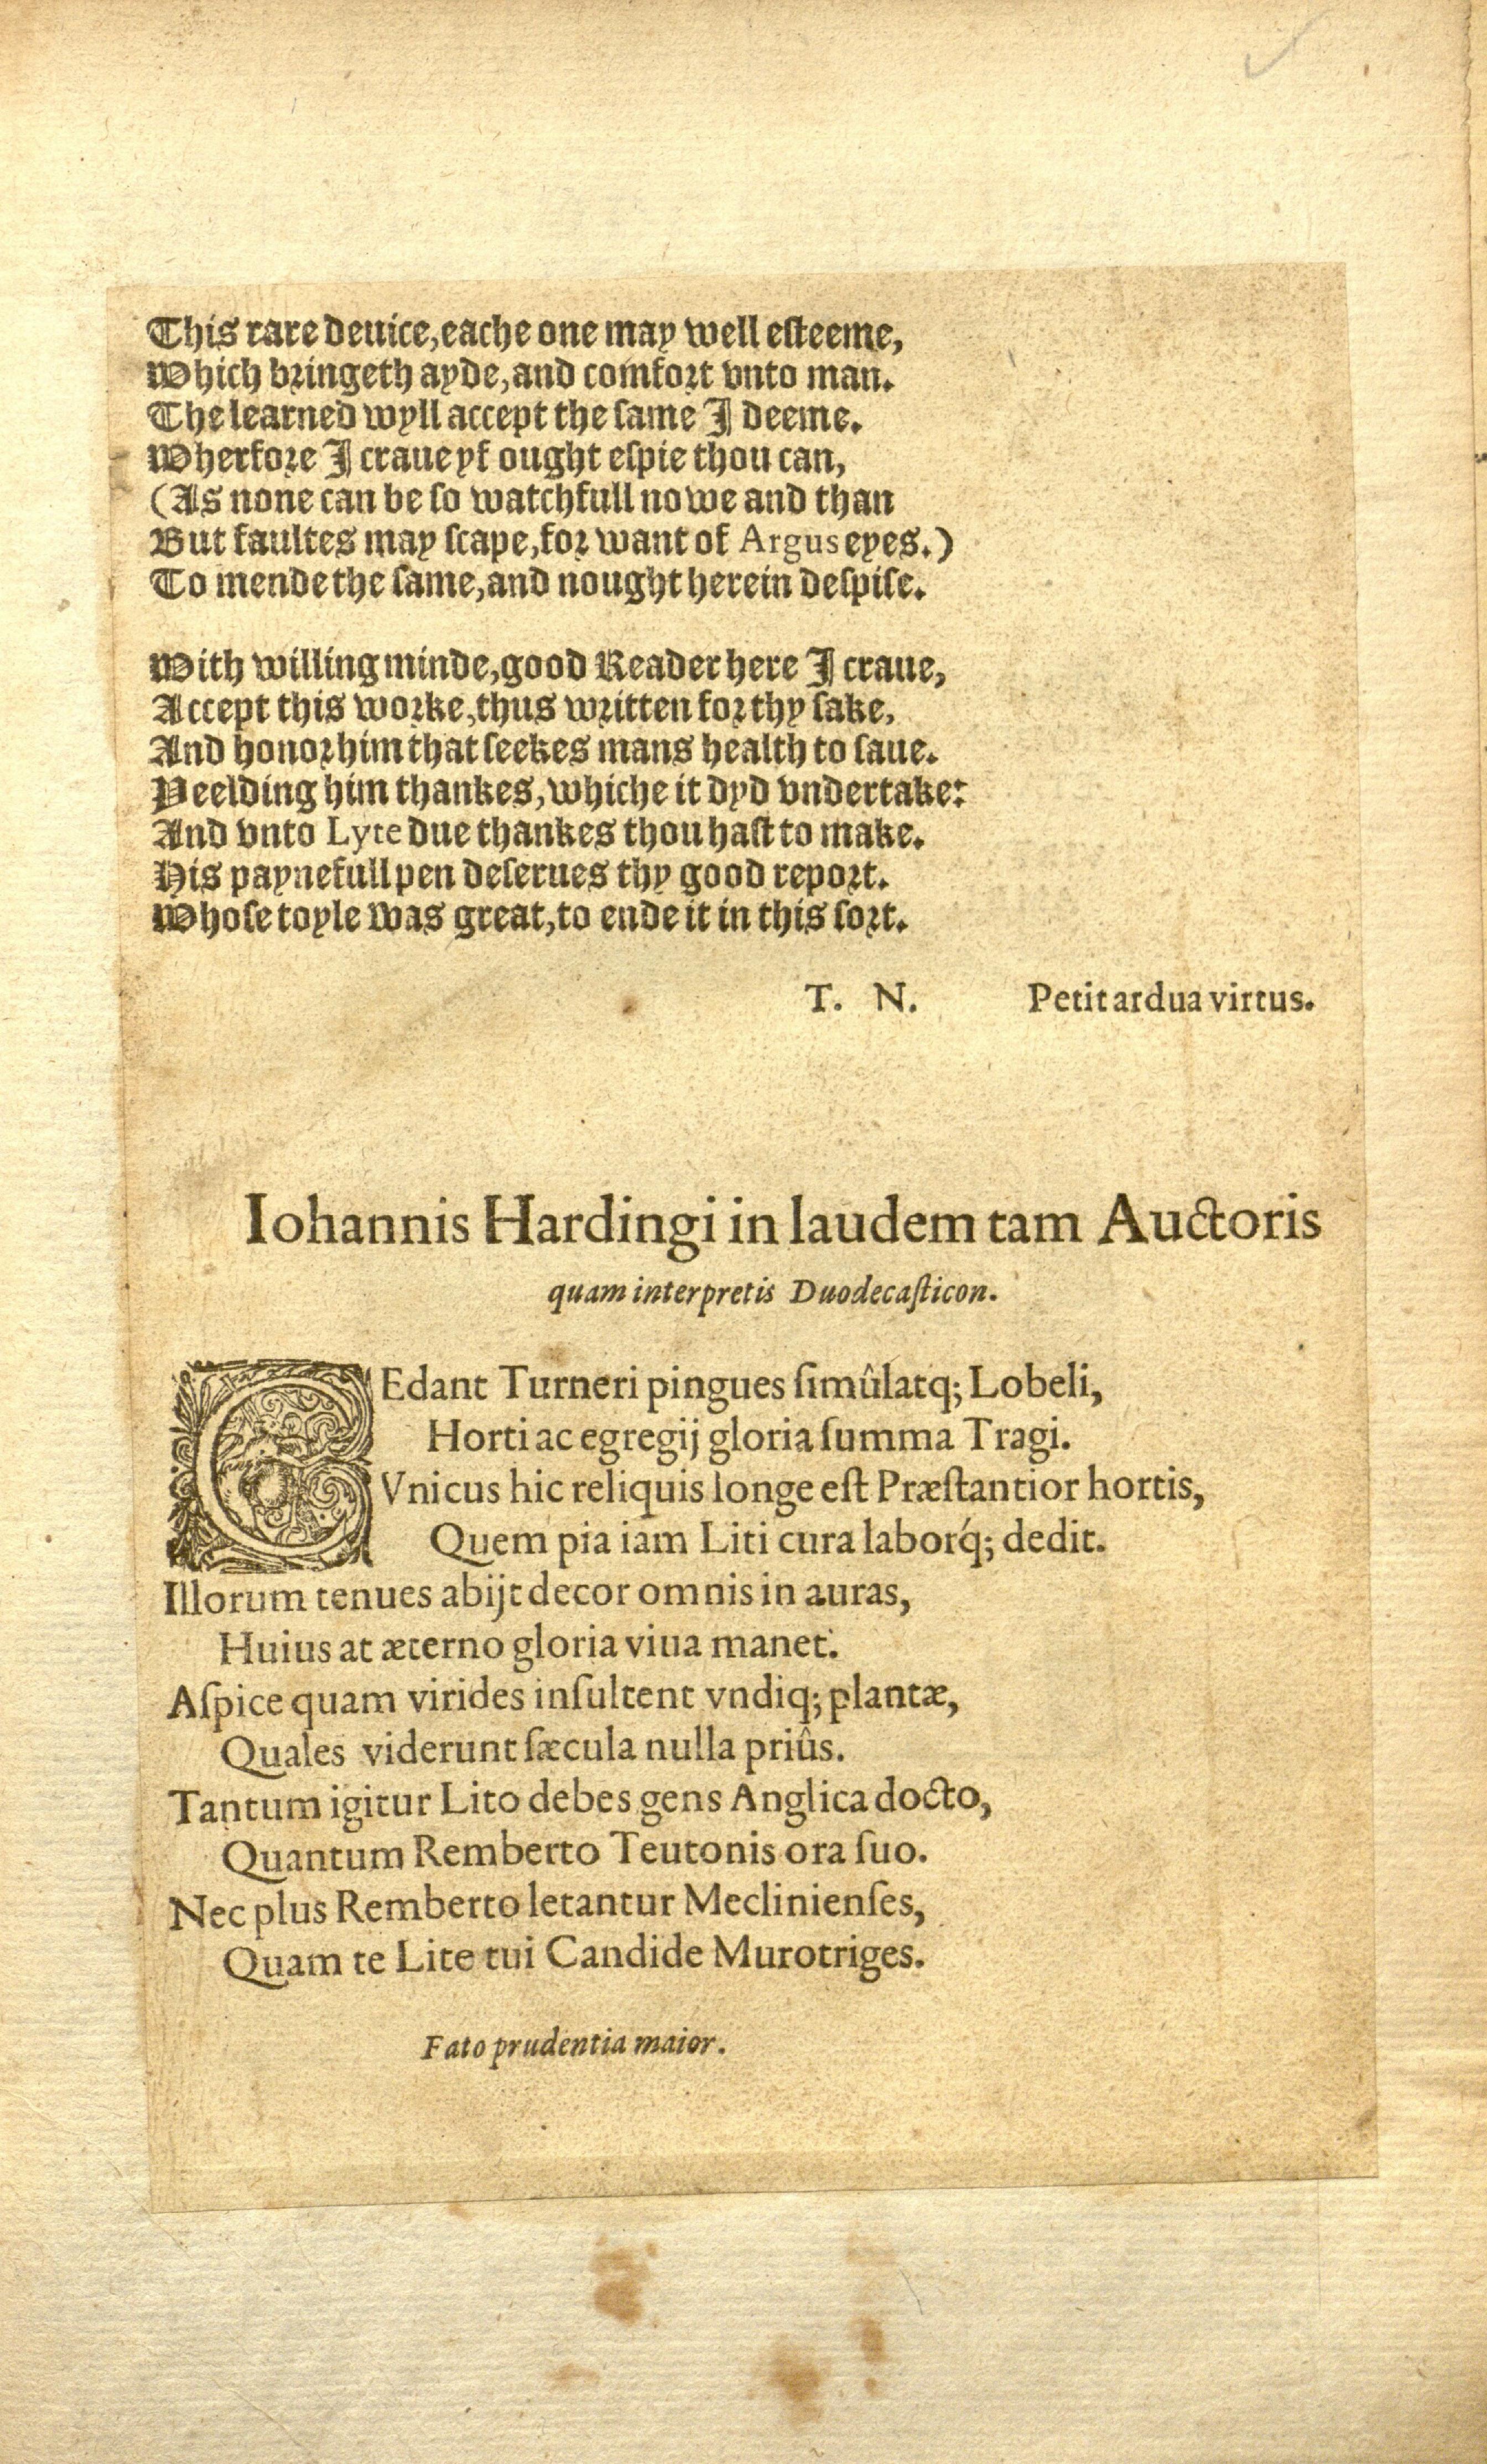 This rare deuice, eache one may well esteeme,
Which bringeth ayde, and comfort vnto man.
The learned wyll accept the same I deeme.
Wherfore I craue yf ought espie thou can,
(As none can be so watchfull nowe and than
But faultes may scape, for want of Argus eyes.)
To mende the same, and nought herein despise.
With willing minde, good Reader here I craue,
Accept this worke, thus written for thy sake,
And honor him that seekes mans health to saue.
Yeelding him thankes, whiche it dyd vndertake:
And vnto Lyte due thankes thou hast to make.
His paynefull pen deserues thy good report.
Whose toyle was great, to ende it in this sort.
T. N. Petit ardua virtus.
Iohannis Hardingi in laudem tam Auctoris
quam interpretis Duodecaſticon.
CEdant Turneri pingues ſimûlatq; Lobeli,
Horti ac egregij gloria ſumma Tragi.
Vnicus hic reliquis longe eſt Præſtantior hortis,
Quem pia iam Liti cura laborq́; dedit.
Illorum tenues abijt decor omnis in auras,
Huius at æterno gloria viua manet.
Aſpice quam virides inſultent vndiq; plantæ,
Quales viderunt ſæcula nulla priûs.
Tantum igitur Lito debes gens Anglica docto,
Quantum Remberto Teutonis ora ſuo.
Nec plus Remberto letantur Meclinienſes,
Quam te Lite tui Candide Murotriges.
Fato prudentia maior.